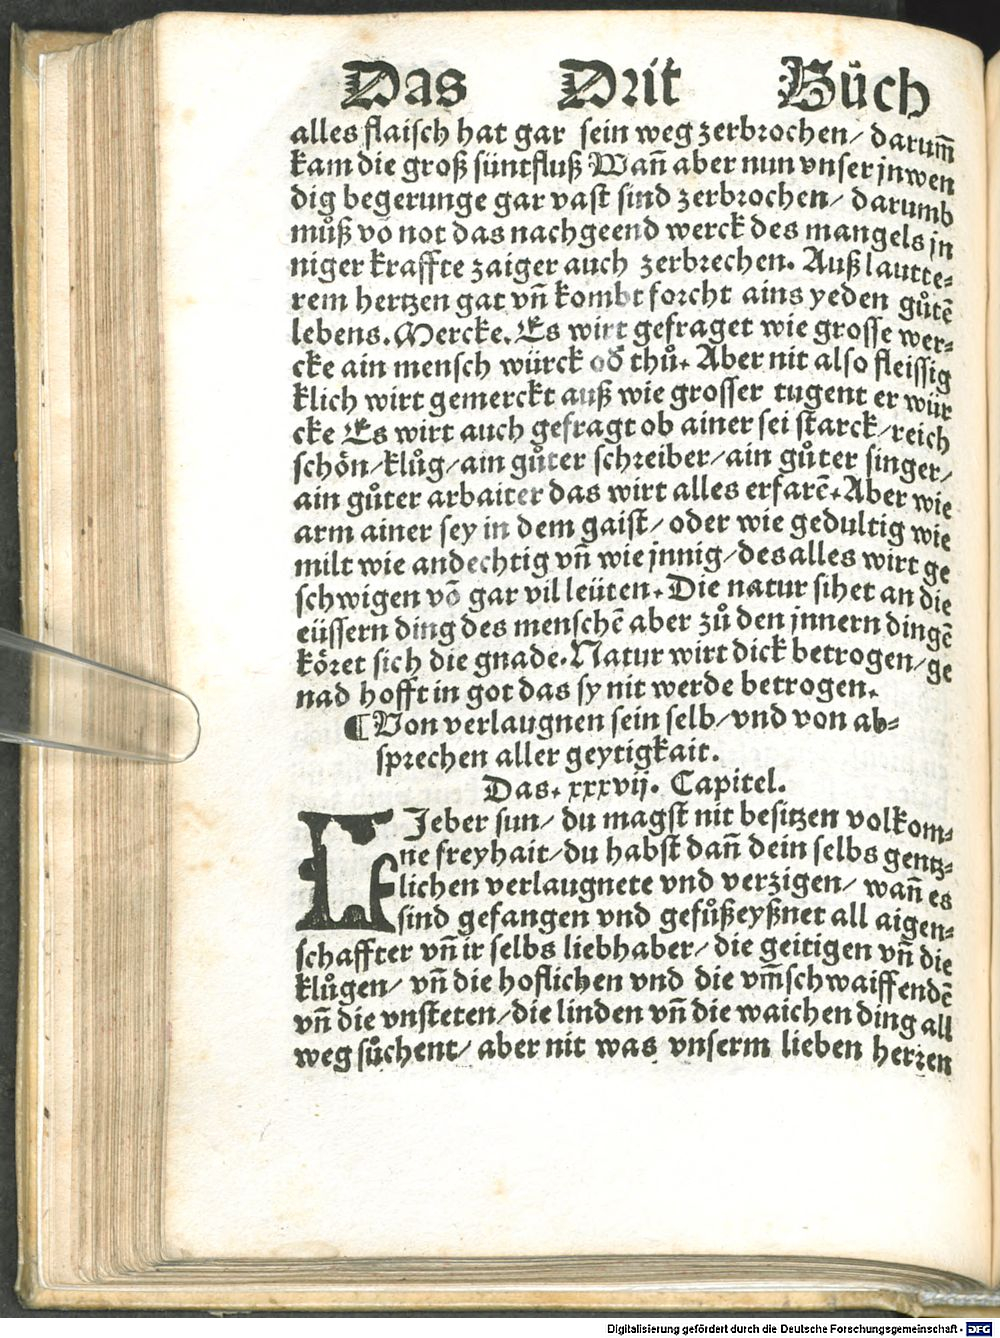 Das Drit Bůch
alles flaisch hat gar sein weg zerbrochen/ darum̄
kam die groß süntfluß Wañ aber nun vnser jnwen
dig begerunge gar vast sind zerbrochen/ darumb
můß võ not das nachgeend werck des mangels jn
niger kraffte zaiger auch zerbrechen. Auß lautte⸗
rem hertzen gat vñ kombt forcht ains yeden gůtẽ
lebens. Mercke. Es wirt gefraget wie grosse wer⸗
cke ain mensch würck oď thů. Aber nit also fleissig
klich wirt gemerckt auß wie grosser tugent er wür
cke Es wirt auch gefragt ob ainer sei starck/ reich
schön/ klůg/ ain gůter schreiber/ ain gůter singer/
ain gůter arbaiter das wirt alles erfarẽ. Aber wie
arm ainer sey in dem gaist/ oder wie gedultig wie
milt wie andechtig vñ wie jnnig/ des alles wirt ge
schwigen võ gar vil leüten. Die natur sihet an die
eüssern ding des menschẽ aber zů den jnnern dingẽ
köret sich die gnade. Natur wirt dick betrogen/ ge
nad hofft in got das sy nit werde betrogen.
¶ Von verlaugnen sein selb/ vnd von ab⸗
sprechen aller geytigkait.
Das. xxxvij. Capitel.
LJeber sun/ du magst nit besitzen volkom⸗
ne freyhait/ du habst dañ dein selbs gentz⸗
lichen verlaugnete vnd verzigen/ wañ es
sind gefangen vnd gefůßeyßnet all aigen⸗
schaffter vñ ir selbs liebhaber/ die geitigen vñ die
klůgen/ vñ die hoflichen vnd die vm̄schwaiffendẽ
vñ die vnsteten/ die linden vñ die waichen ding all
weg sůchent/ aber nit was vnserm lieben herren
Digitalisierung gefördert durch die Deutsche Forschungsgemeinschaft - DFG